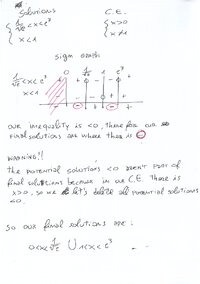 Solutions C.E.
{ 1/√e < x < e³ { x>0
{ x<1 { x≠1
sign graph
0 1/√e 1 e³
1/√e <x< e³
x<1
our inequality is <0, therefore our
final solutions are where there is ⊖
WARNING!!
the potential solutions <0 aren't part of
final solutions because in our C.E. there is
x>0, so let's delete all potential solutions
<0.
So our final solutions are:
0<x<1/√e ∪ 1<x<e³